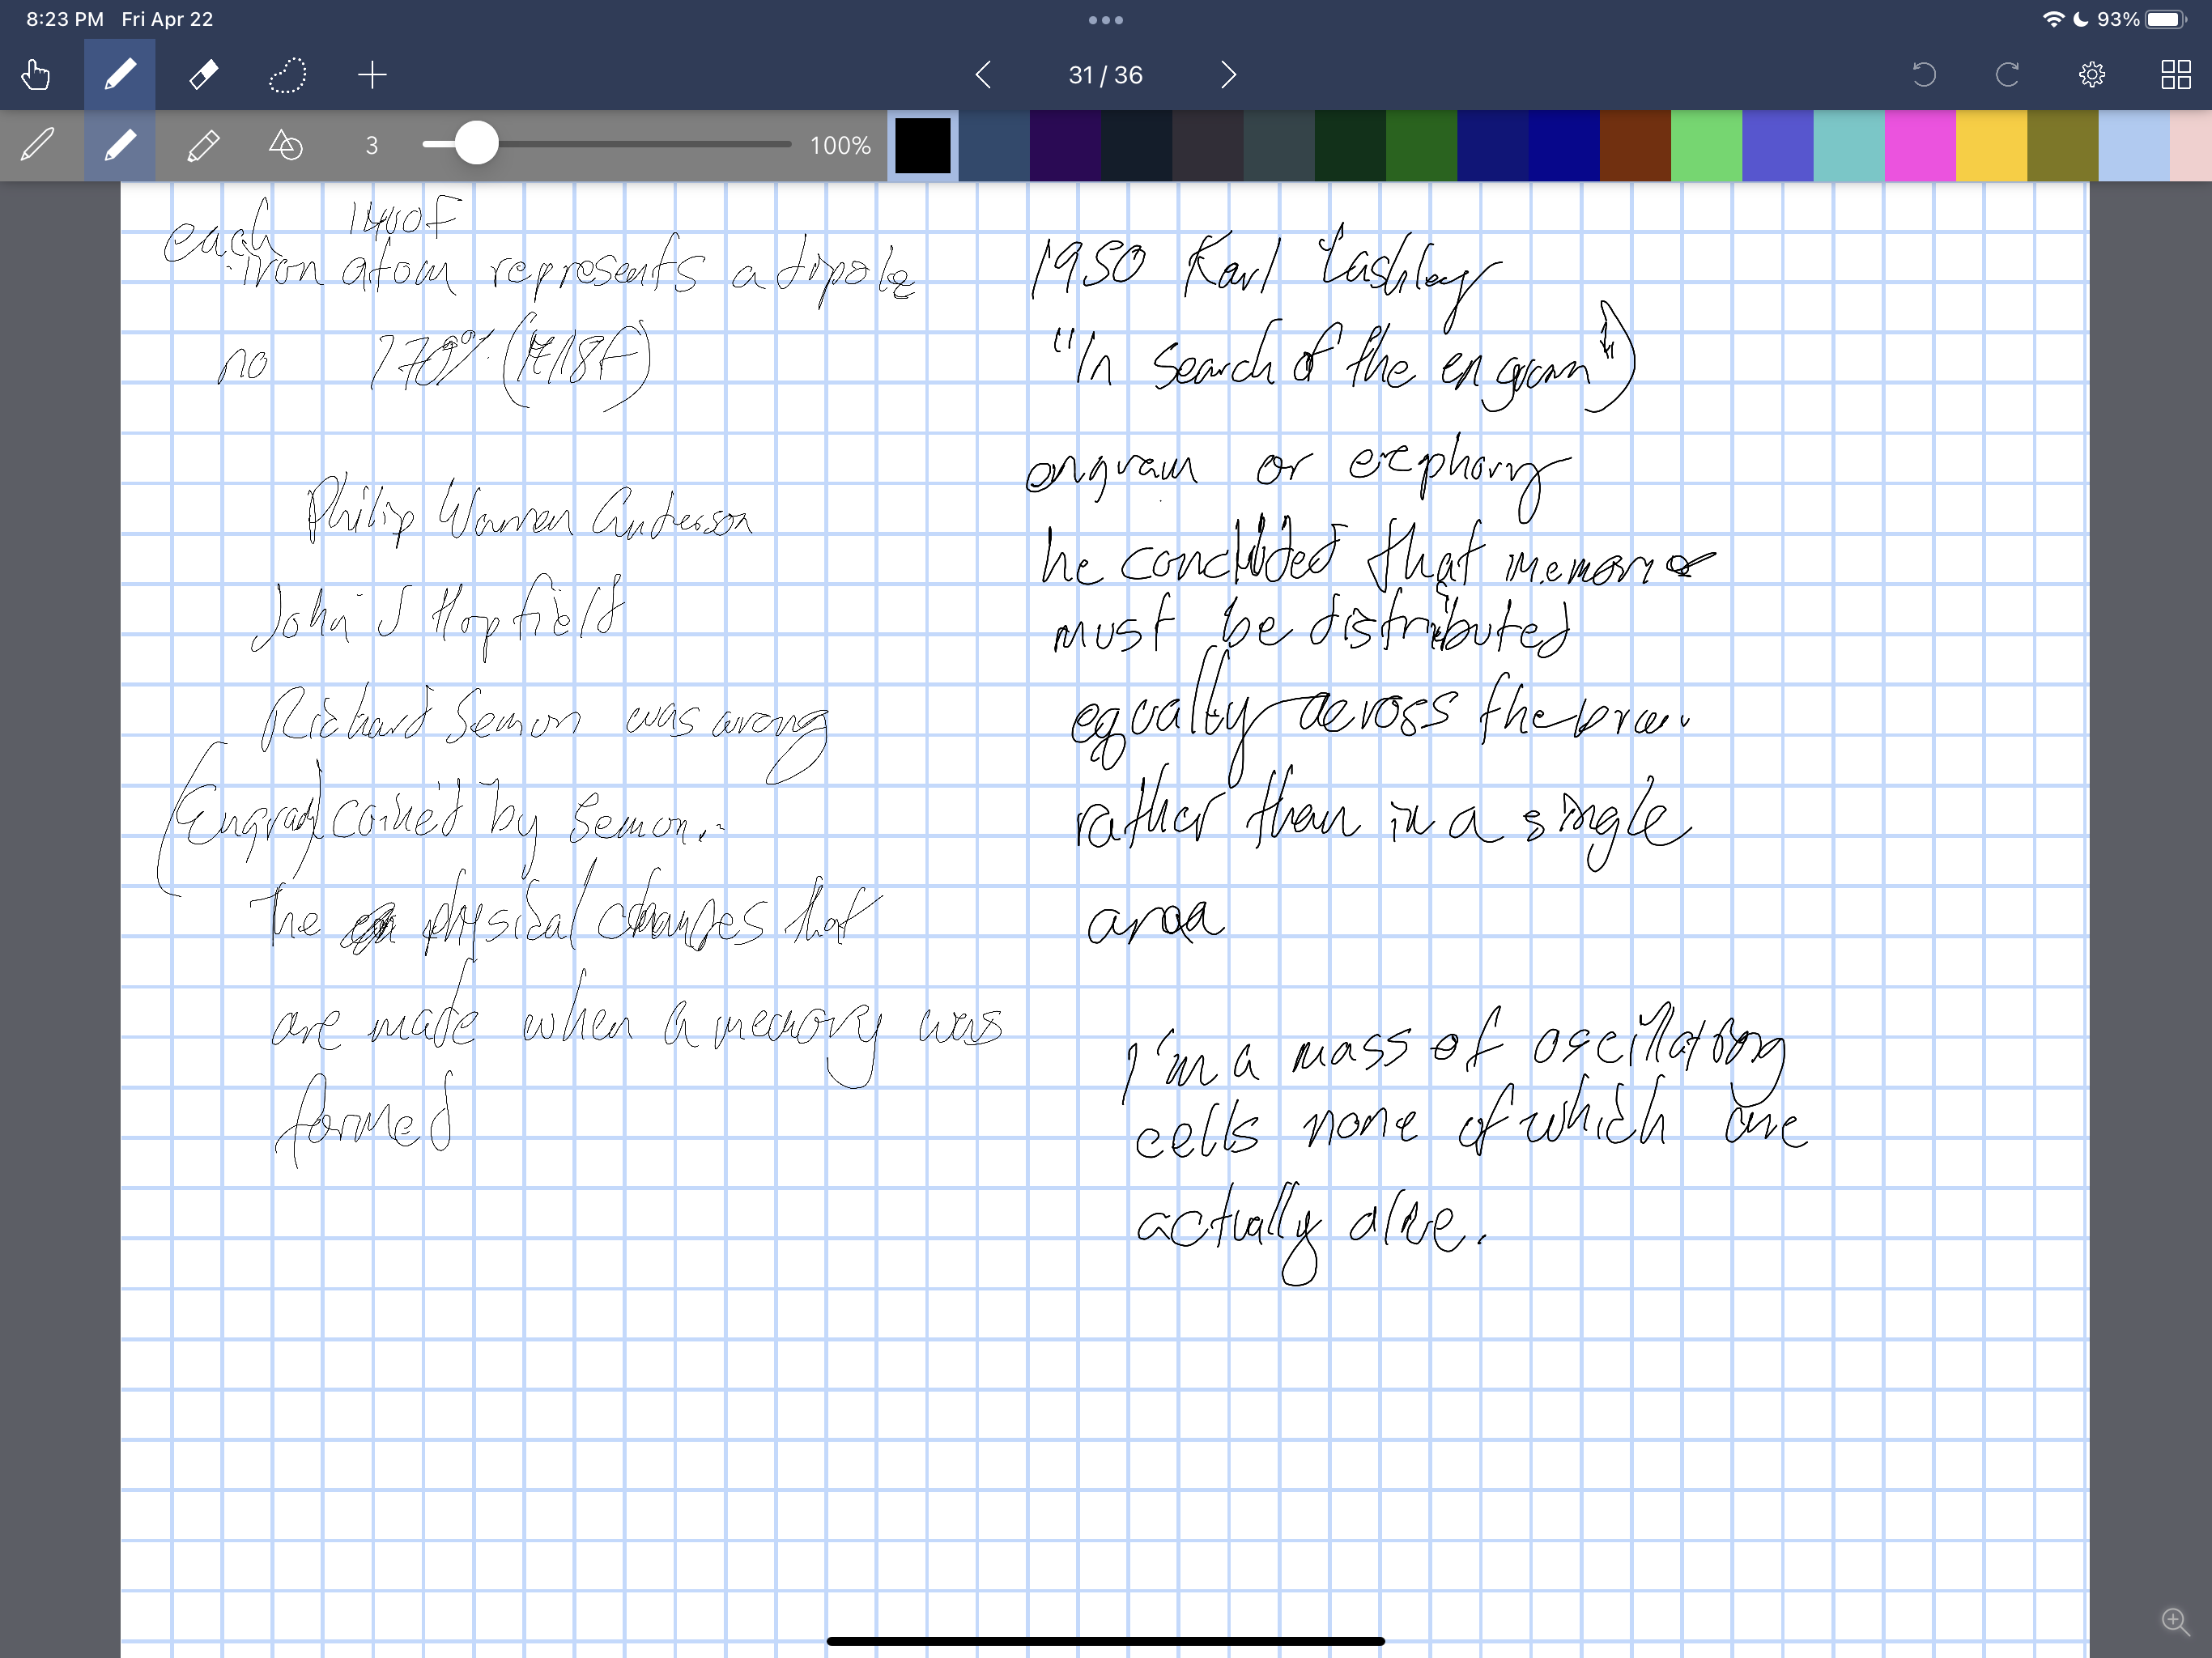 8:23 PM Fri Apr 22
93%
31 / 36
3
100%
each 1400F
iron atom represents a dipole
no 770° (1418F)
Philip Warren Anderson
John J Hopfield
Richard Semon was wrong
(Engram) coined by Semon.
The physical changes that
are made when a memory was
formed
1950 Karl Lashley
"In search of the engram")
engram or
he concluded that
must be distributed
equally across the brain
rather than in a single
area
I'm a mass of oscillating
cells none of which are
actually alive.